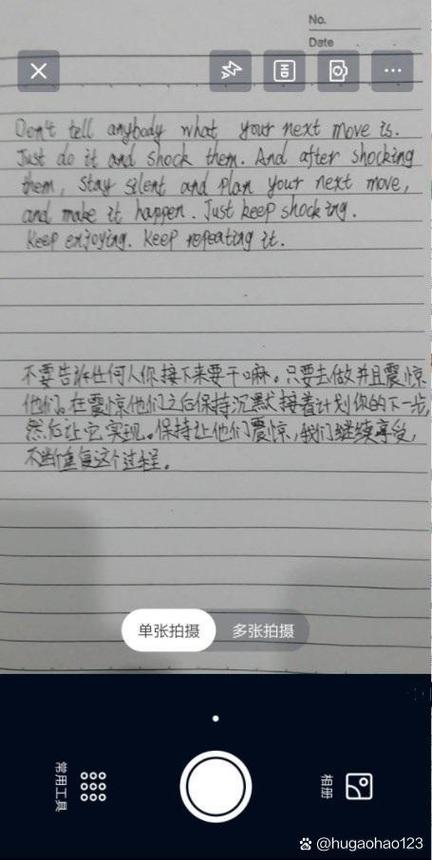 No.
Date
Don't tell anybody what your next move is.
Just do it and shock them. And after shocking
them, stay silent and plan your next move,
and make it happen. Just keep shocking.
Keep enjoying. Keep repeating it.
不要告诉任何人你接下来要干嘛。只要去做并且震惊
他们。在震惊他们之后保持沉默接着计划你的下一步,
然后让它实现。保持让他们震惊,我们继续享受,
不断重复这个过程。
单张拍摄 多张拍摄
常用工具
相册
@hugaohao123